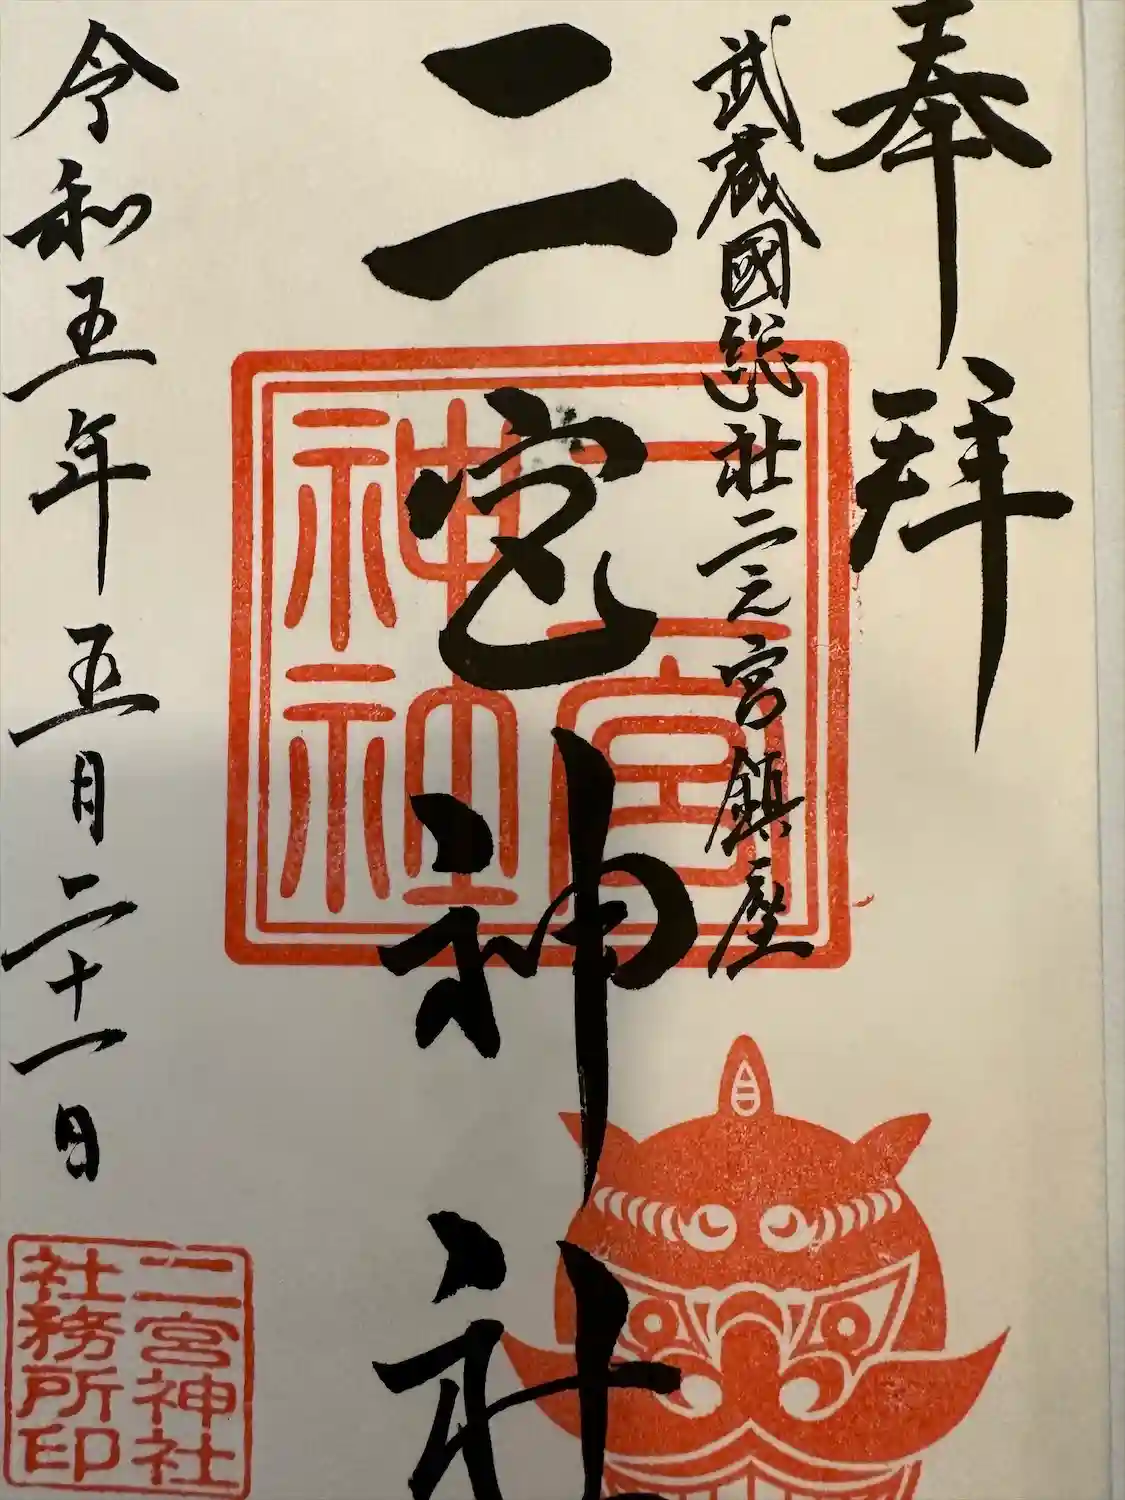 奉拝
武蔵國総社二之宮鎮座
二宮神社
令和五年五月二十一日
二宮神社
二宮神社
社務所印